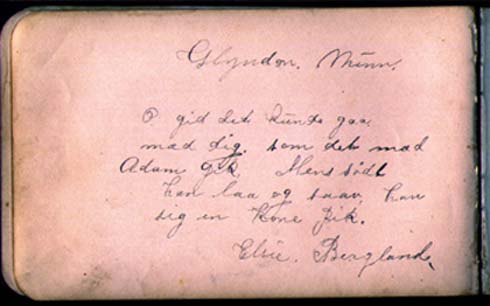 Glyndon. Minn.
O gid det kunde gaa
mad dig. som det mad
Adam Gik. Mens södt
han laa og saav, han
sig en Kone fik.
Elsie. Bergland.